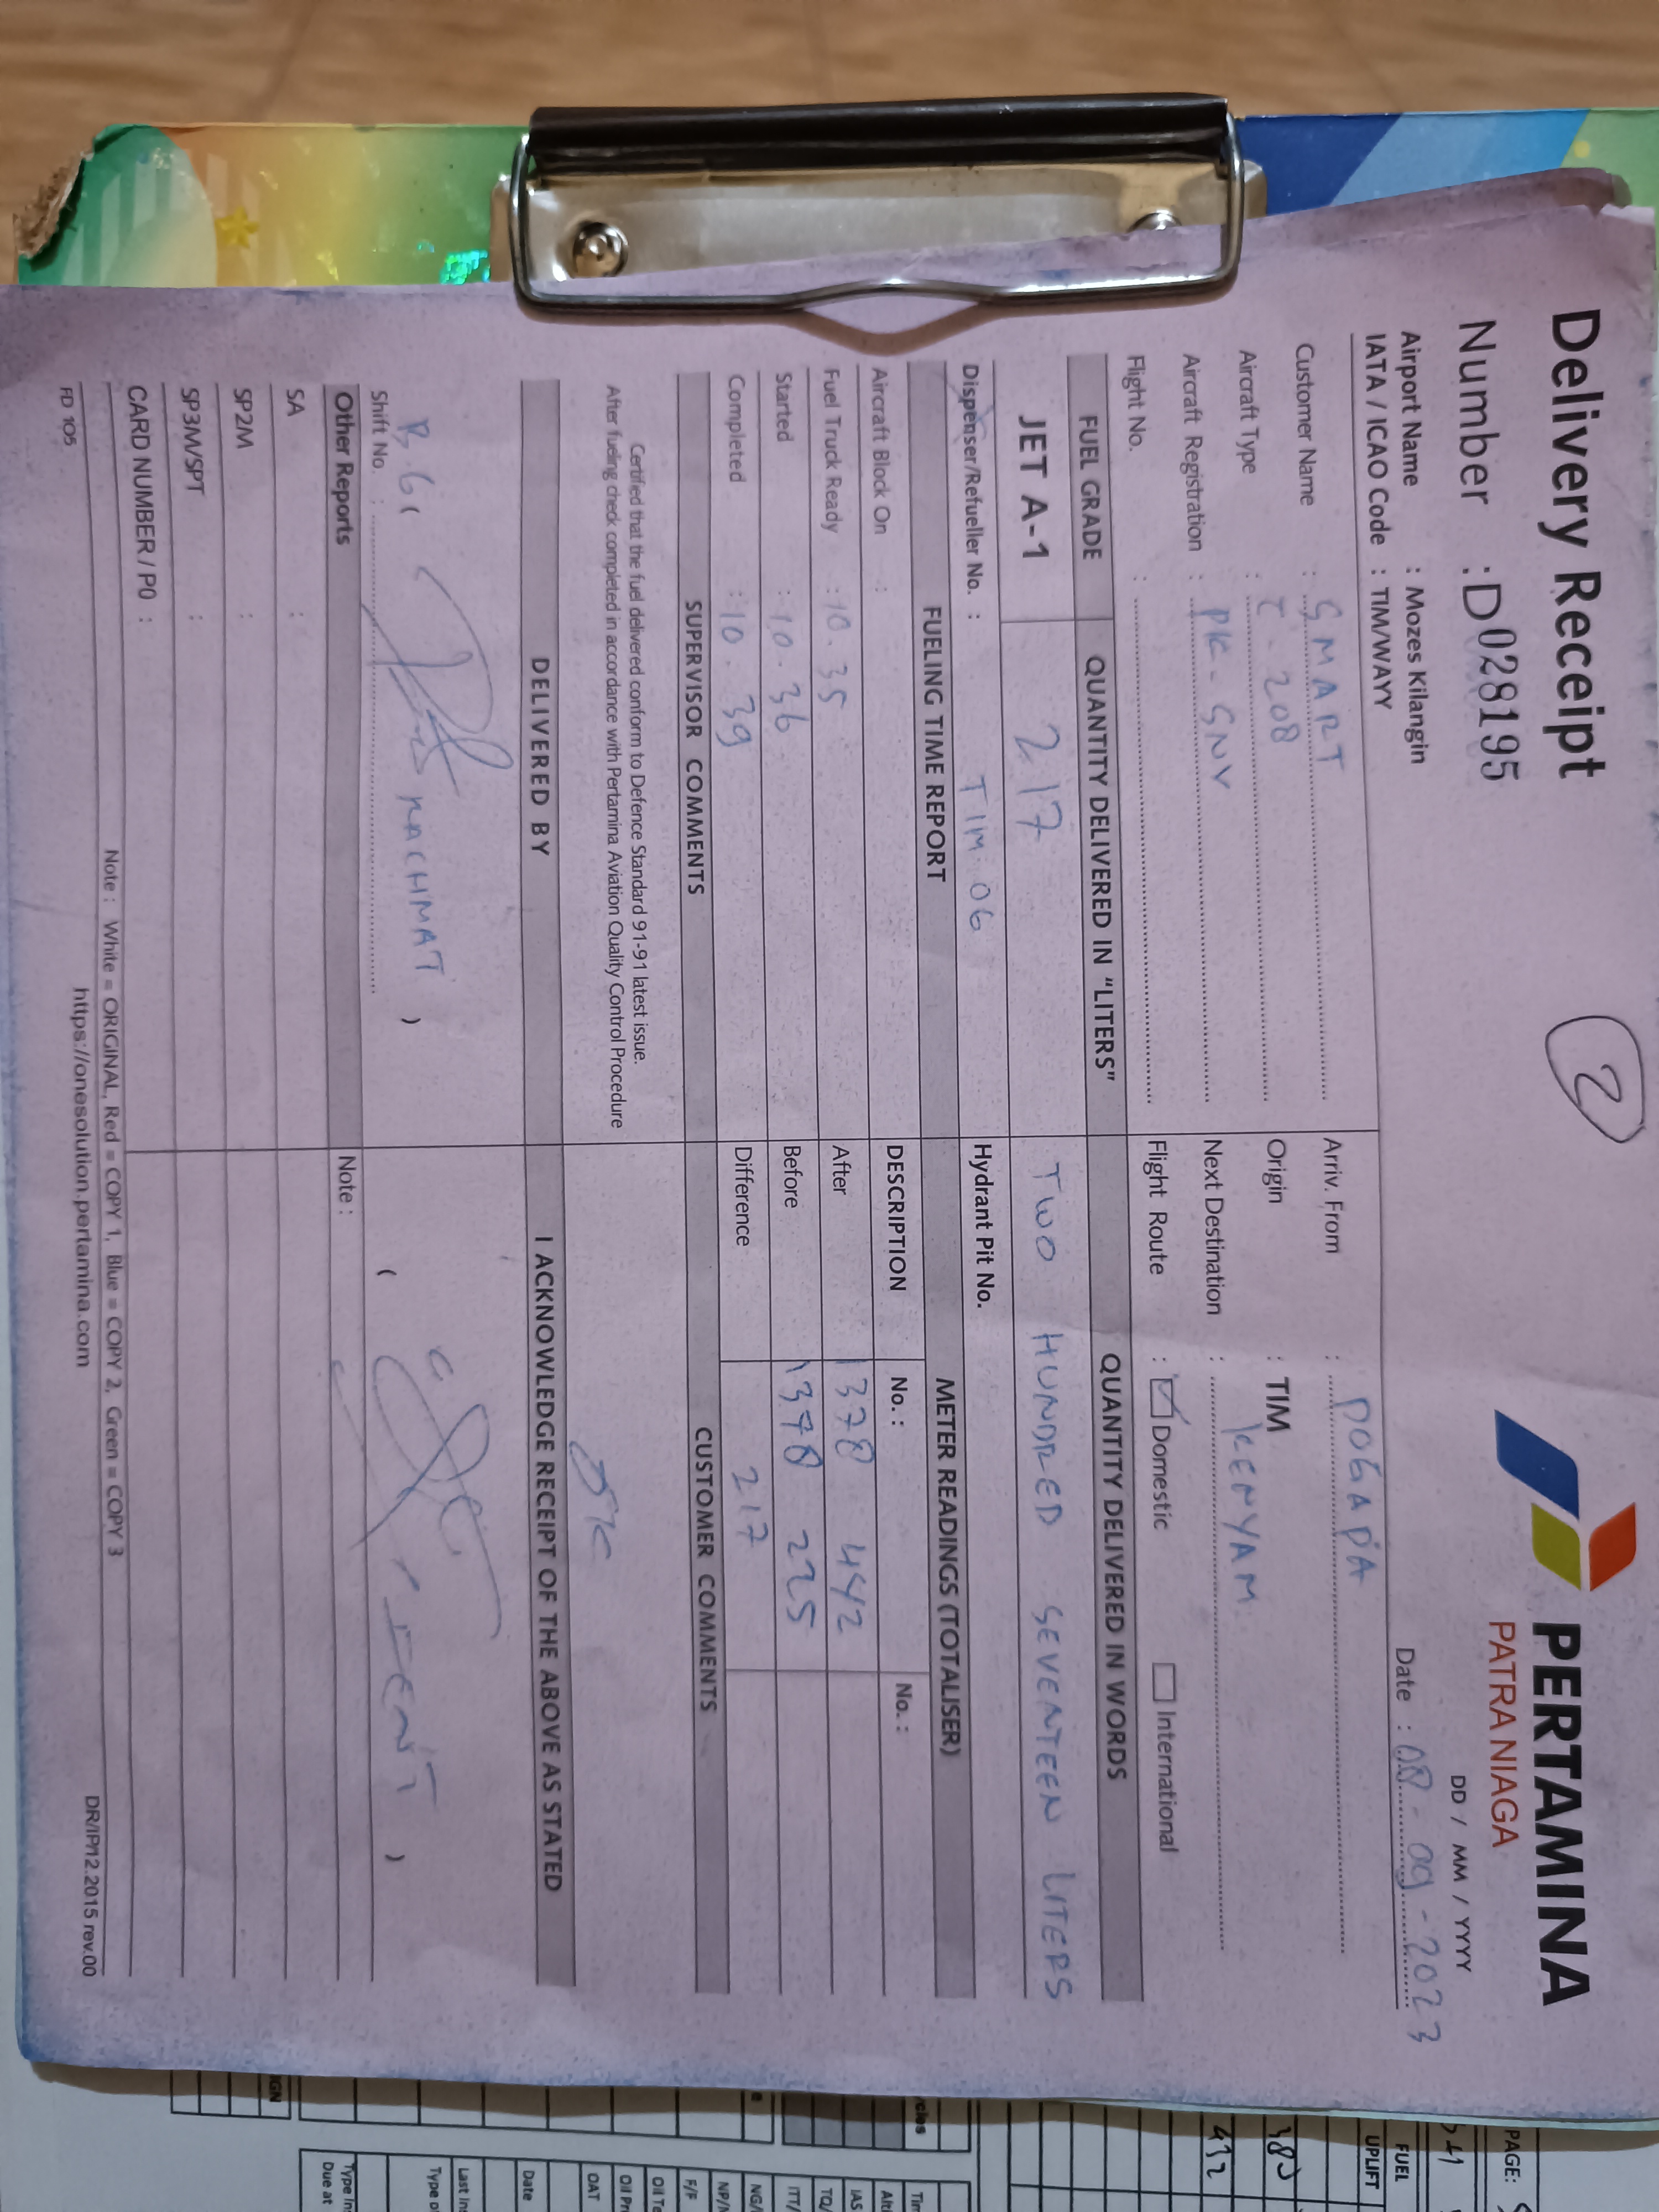 Delivery Receipt
2
PERTAMINA
PATRA NIAGA
Number : D028195
DD / MM / YYYY
Airport Name : Mozes Kilangin
Date : 08 - 09 - 2023
IATA / ICAO Code : TIM/WAYY
Customer Name : SMART
Arriv. From : DOGAPA
Aircraft Type : C - 208
Origin : TIM
Aircraft Registration : PK - SNV
Next Destination : KENYAM
Flight No. :
Flight Route : Domestic International
FUEL GRADE QUANTITY DELIVERED IN "LITERS" QUANTITY DELIVERED IN WORDS
JET A-1 217 TWO HUNDRED SEVENTEEN LITERS
Dispenser/Refueller No. : TIM 06 Hydrant Pit No.
FUELING TIME REPORT METER READINGS (TOTALISER)
Aircraft Block On : DESCRIPTION No. : No. :
Fuel Truck Ready : 10.35 After 1378 442
Started : 10.36 Before 1378 225
Completed : 10.39 Difference 217
SUPERVISOR COMMENTS CUSTOMER COMMENTS
Certified that the fuel delivered conform to Defence Standard 91-91 latest issue.
After fueling check completed in accordance with Pertamina Aviation Quality Control Procedure
OK
DELIVERED BY I ACKNOWLEDGE RECEIPT OF THE ABOVE AS STATED
RACHMAT )
( )
Shift No. :
Other Reports Note :
SA :
SP2M :
SP3M/SPT :
CARD NUMBER / PO :
Note : White = ORIGINAL, Red = COPY 1, Blue = COPY 2, Green = COPY 3
https://onesolution.pertamina.com
FD 105
DR/IP/12.2015 rev.00
PAGE:
FUEL
UPLIFT
383
432
cles
GN
Date
OAT
F/F
Type In
Due at